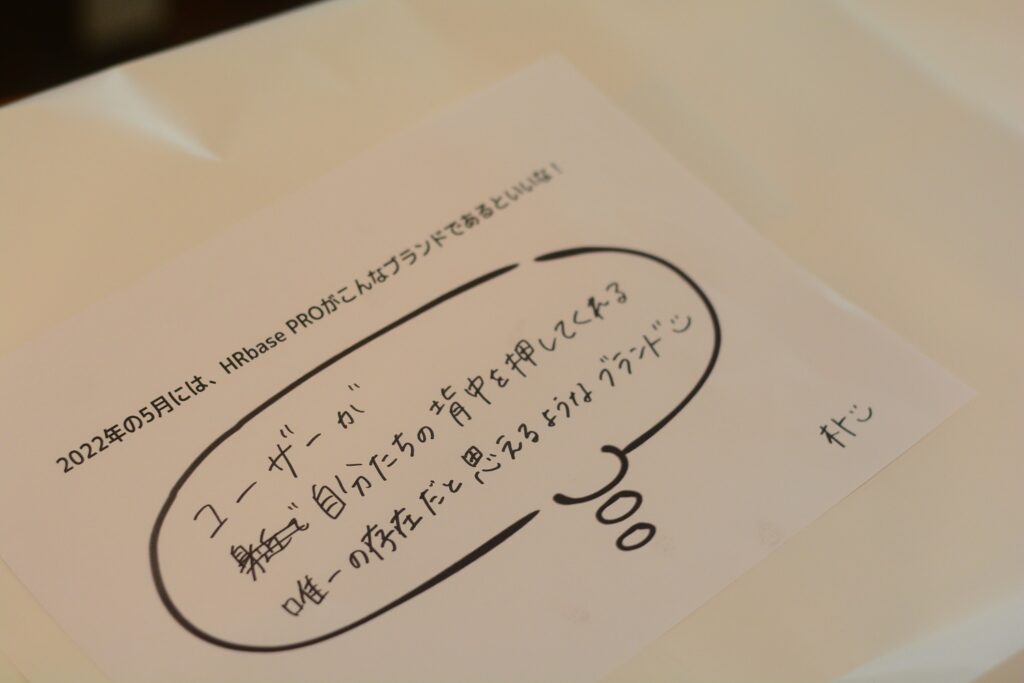 2022年の5月には、HRbase PROがこんなブランドであるといいな！
ユーザーが
自分たちの背中を押してくれる
唯一の存在だと思えるようなブランド
朴